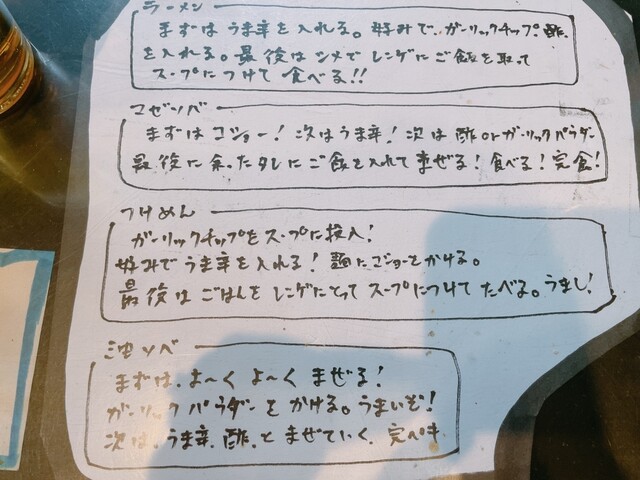 ラーメン
まずはうま辛を入れる。好みで、ガーリックチップ、酢、
を入れる。最後はシメでレンゲにご飯を取って
スープにつけて食べる!!
マゼソバ
まずはコショー!次はうま辛!次は酢orガーリックパウダー
最後に余ったタレにご飯を入れて まぜる!食べる!完食!
つけめん
ガーリックチップをスープに投入!
好みでうま辛を入れる!麺にコショーをかける。
最後はごはんをレンゲにとってスープにつけてたべる。うまし!
油ソバ
まずは、よ〜くよ〜くまぜる!
ガーリックパウダーをかける。うまいぞ!
次は、うま辛、酢、とまぜていく、完ペキ